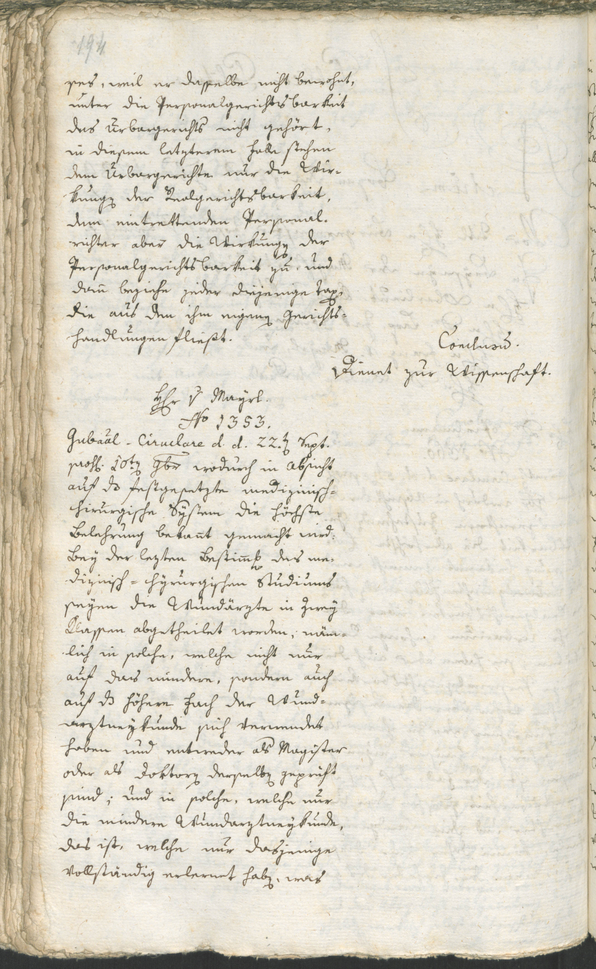 194
ses, weil er dasselbe nicht bewohnt,
unter die Personalgerichtsbarkeit
des Urbargerichts nicht gehört,
in diesem letzterem Falle stehen
dem Urbargerichte nur die Wir-
kungen der Realgerichtsbarkeit,
dem eintrettenden Personal-
richter aber die Wirkungen der
Personalgerichtsbarkeit zu, und
dann beziehe jeder diejenige Tax,
die aus den ihm eigenen Gerichts-
handlungen fließt.
Conclusum.
Dienet zur Wissenschaft.
Hr v Mayrl
No 1353.
Gubernial-Circulare d. d. 22.ten Sept.
wodurch in Absicht
auf das festgesetzte medizinisch-
chirurgische System die höchste
Belehrung bekannt gemacht wird.
Bey der letzten Bestimmung des me-
dizinisch-chyrurgischen Studiums
seyen die Wundärzte in zwey
Klassen abgetheilet worden, näm-
lich in solche, welche nicht nur
auf das mindere, sondern auch
auf das höhere Fach der Wund-
arztneykunde sich verwendet
haben und entweder als Magister
oder als Doktoren derselben geprüft
sind; und in solche, welche nur
die mindere Wundarztneykunde,
das ist, welche nur dasjenige
vollständig erlernet haben, was